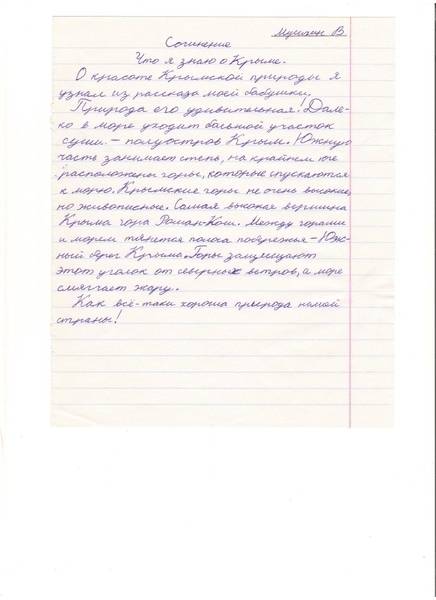 Мушкин В
Сочинение
Что я знаю о Крыме.
О красоте Крымской природы я
узнал из рассказа моей бабушки.
Природа его удивительная! Дале-
ко в море уходит большой участок
суши – полуостров Крым. Южную
часть занимает степь, на крайнем юге
расположены горы, которые спускаются
к морю. Крымские горы не очень высокие,
но живописные. Самая высокая вершина
Крыма гора Роман-Кош. Между горами
и морем тянется полоса побережья – Юж-
ный берег Крыма. Горы защищают
этот уголок от северных ветров, а море
смягчает жару.
Как всё-таки хороша природа нашей
страны!